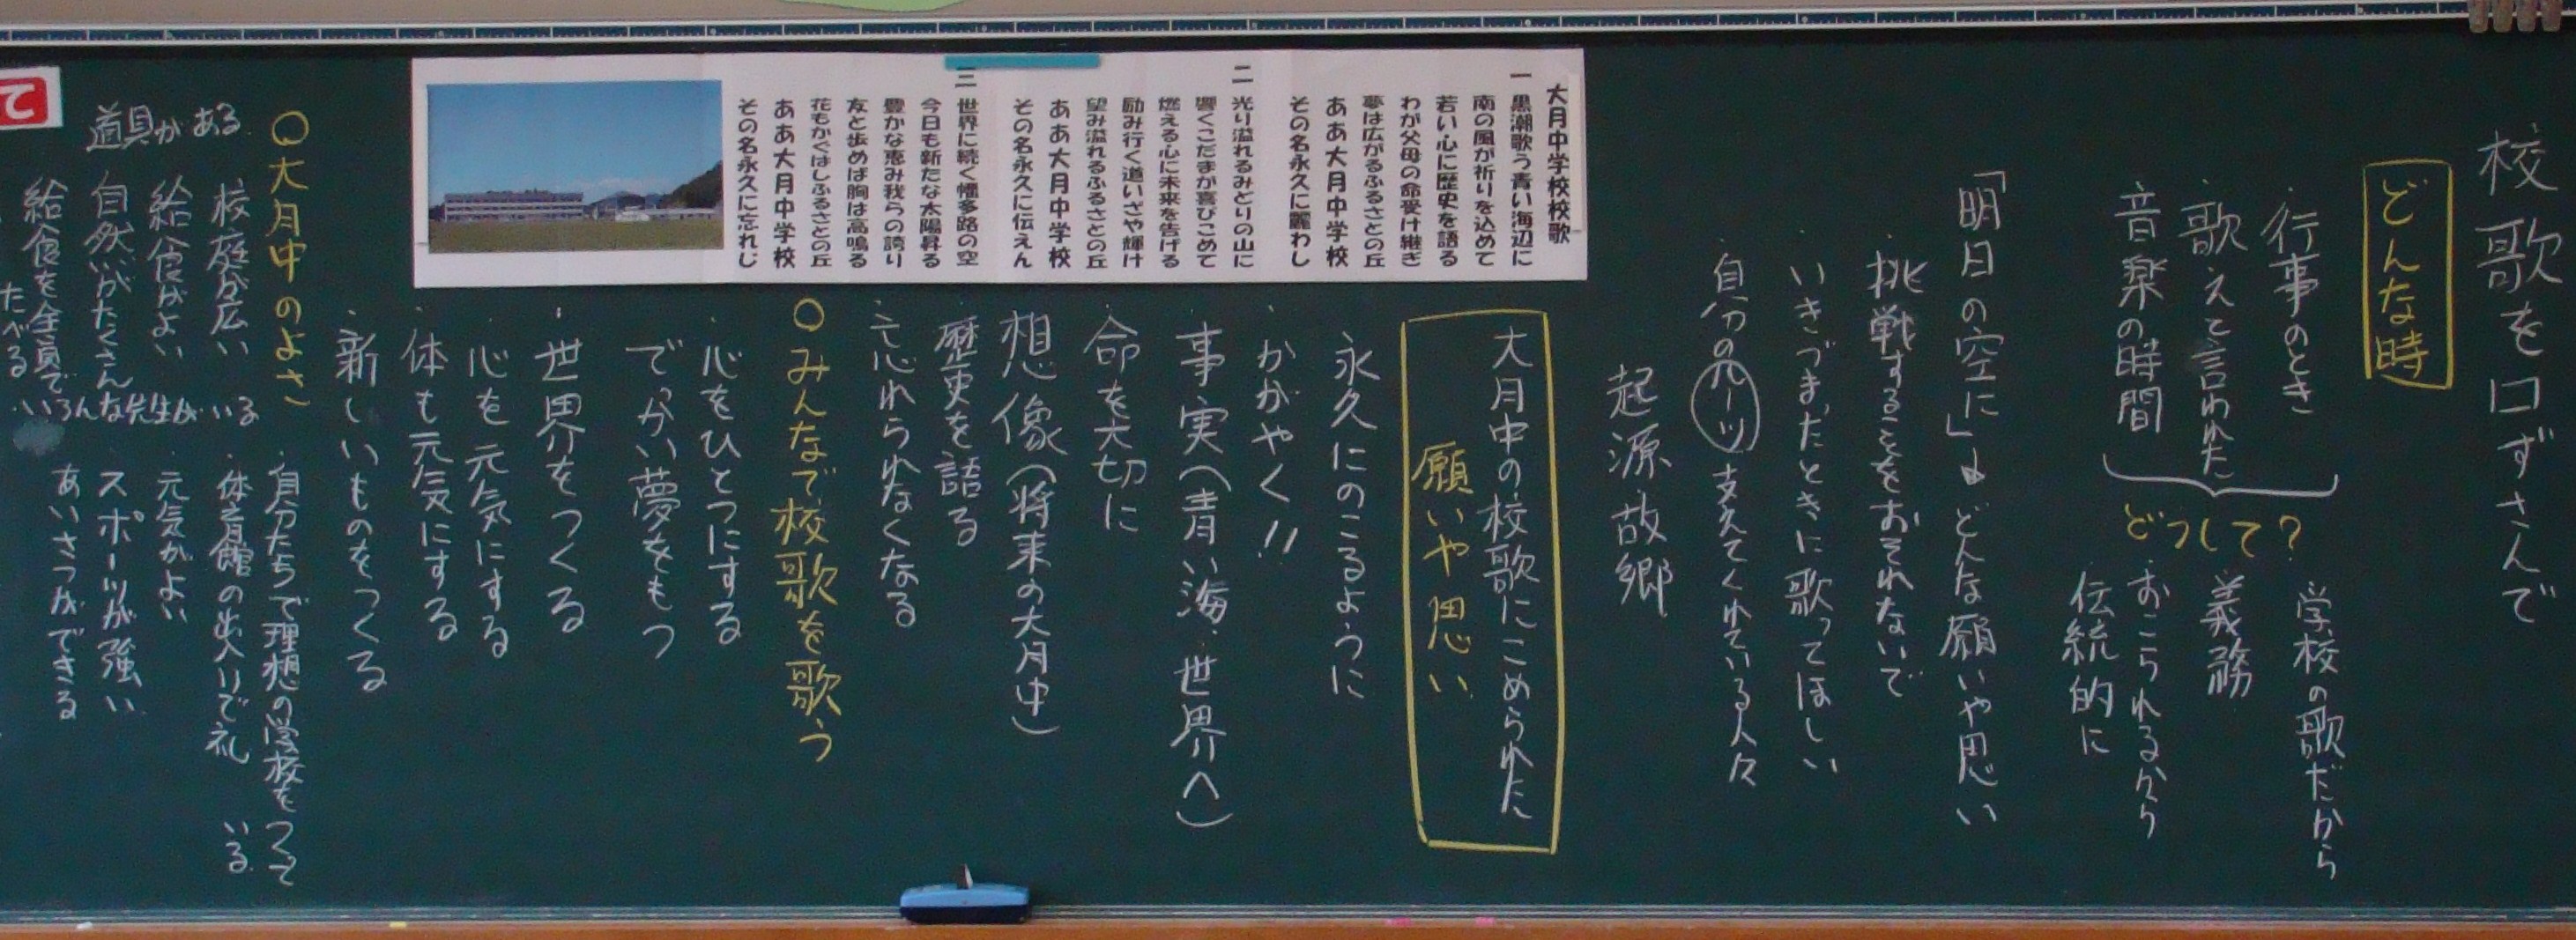 校歌を口ずさんで
どんな時
行事のとき
歌えて言われた
音楽の時間
どうして？
学校の歌だから
義務
おこられるから
伝統的に
「明日の空に」は どんな願いや思い
・挑戦することをおそれないで
・いきづまったときに歌ってほしい
・自分のルーツ 支えてくれている人々
起源 故郷
大月中学校校歌
一 黒潮歌う青い海辺に
南の風が祈りを込めて
若い心に歴史を語る
わが父母の命受け継ぎ
夢は広がるふるさとの丘
ああ大月中学校
その名永久に麗わし
二 光り溢れるみどりの山に
響くこだまが喜びこめて
燃える心に未来を告げる
励み行く道いざや輝け
望み溢れるふるさとの丘
ああ大月中学校
その名永久に伝えん
三 世界に続く幡多路の空
今日も新たな太陽昇る
豊かな恵み我らの誇り
友と歩めば胸は高鳴る
花もかぐはしふるさとの丘
ああ大月中学校
その名永久に忘れじ
大月中の校歌にこめられた
願いや思い
・永久にのこるように
・かがやく!!
・事実（青い海・世界へ）
・命を大切に
・想像（将来の大月中）
・歴史を語る
・忘れられなくなる
○みんなで校歌を歌う
・心をひとつにする
・でっかい夢をもつ
・世界をつくる
・心を元気にする
・体も元気にする
・新しいものをつくる
○大月中のよさ
・校庭が広い
・給食がよい
・自然がたくさん
・給食を全員で
たべる
道具がある
・いろんな先生がいる
・自分たちで理想の学校をつくって
いる
・体育館の出入りで礼
・元気がよい
・スポーツが強い
・あいさつができる
て